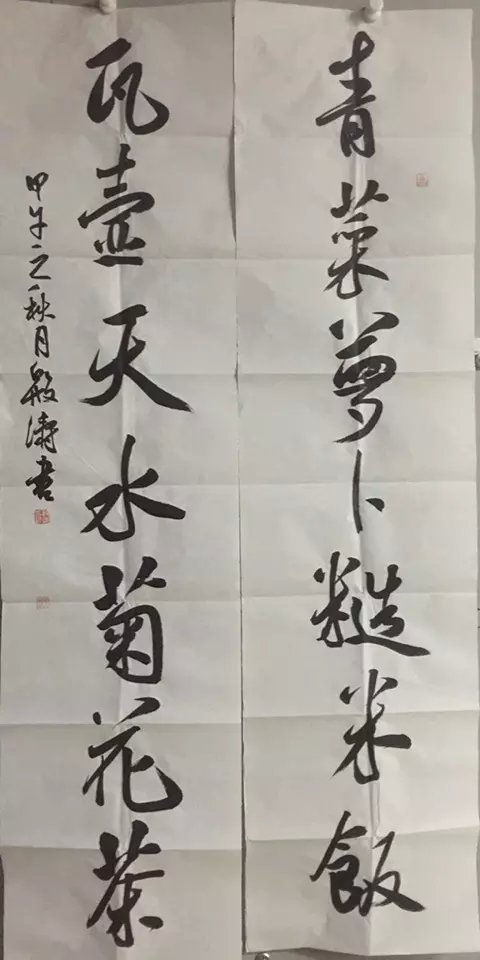 青菜萝卜糙米飯
瓦壺天水菊花茶
甲午之秋月殷涛書